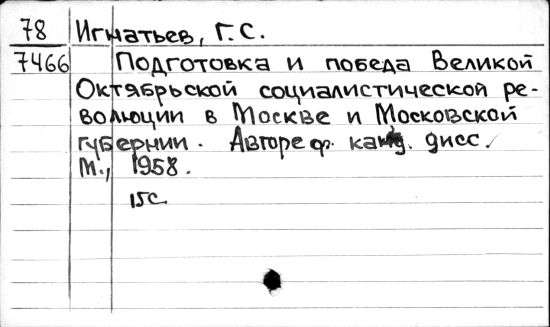 78 Игнатьев, Г. С.
7466 Подготовка и победа Великой
Октябрьской социалистической ре-
волюции в Москве и Московской
губернии. Автореф. канд. дисс.
М., 1958.
15с.